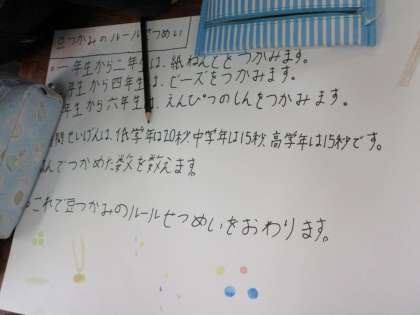 豆つかみのルールせつめい
一年生から二年生は、紙ねんどをつかみます。
年生から四年生は、ビーズをつかみます。
年生から六年生は、えんぴつのしんをつかみます。
間せいげんは、低学年は20秒、中学年は15秒、高学年は15秒です。
んでつかめた数を数えます。
これで豆つかみのルールせつめいをおわります。